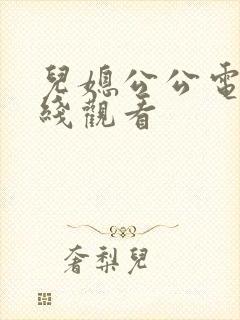 兒媳公公電
綫觀看
奢梨兒